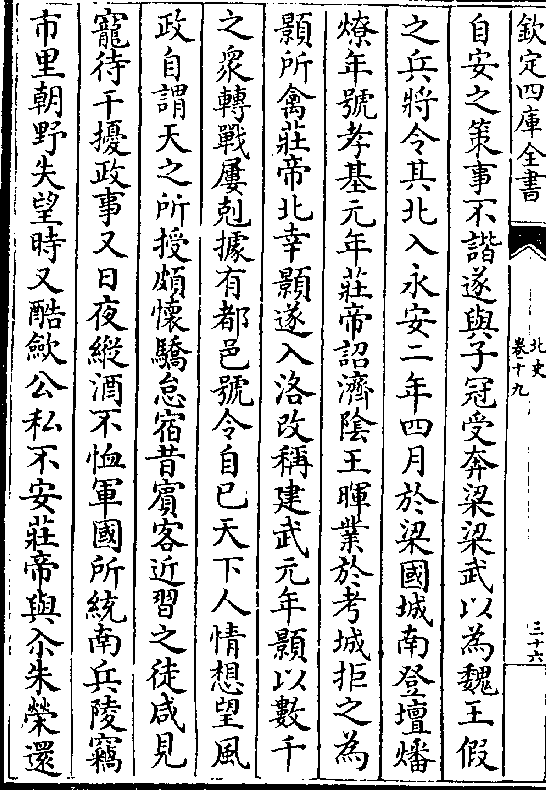 欽定四庫全書
北史
卷十九
三十六
自安之策事不諧遂與子冠受奔梁梁武以為魏王假
之兵將令其北入永安二年四月於梁國城南登壇燔
燎年號孝基元年莊帝詔濟隂王暉業於考城拒之為
顥所禽莊帝北幸顥遂入洛改稱建武元年顥以數千
之衆轉戰屢剋據有都邑號令自已天下人情想望風
政自謂天之所授頗懷驕怠宿昔賓客近習之徒咸見
寵待干擾政事又日夜縱酒不恤軍國所統南兵陵竊
市里朝野失望時又酷斂公私不安莊帝與尒朱榮還